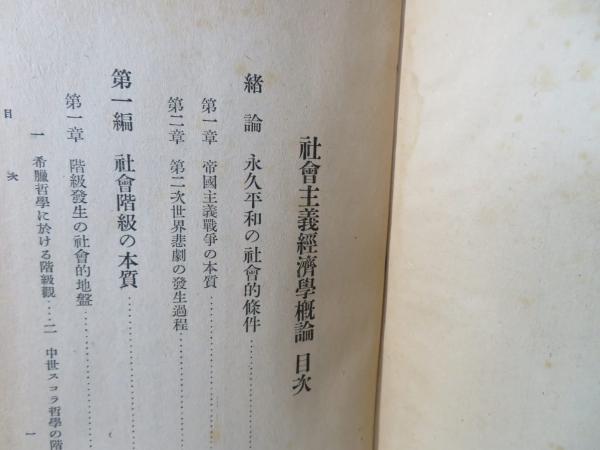 社會主義經濟學槪論 目次
緒論 永久平和の社會的條件………
第一章 帝國主義戰爭の本質………
第二章 第二次世界悲劇の發生過程………
第一編 社會階級の本質………
第一章 階級發生の社會的地盤………
一 希臘哲學に於ける階級觀…二 中世スコラ哲學の階
目次
一